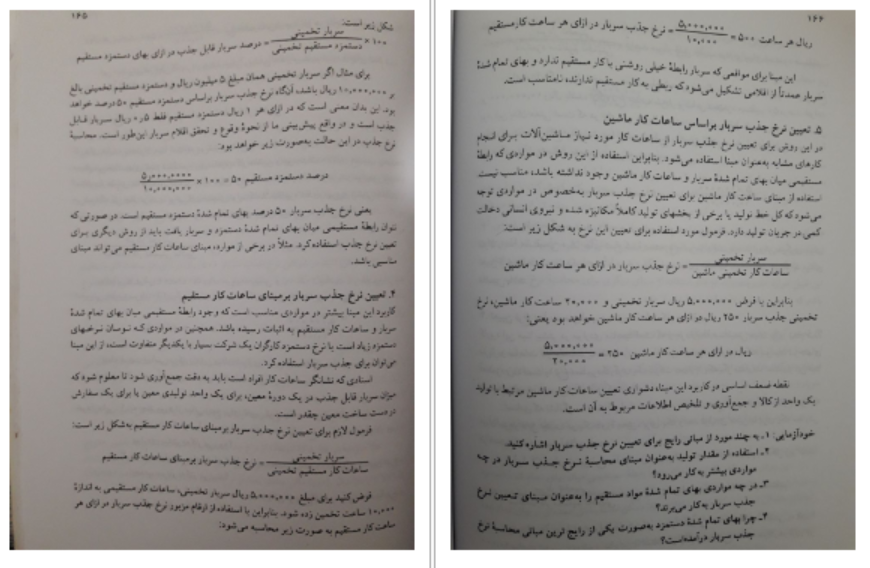 ۱۶۵
شکل زیر است:
سربار تخمینی
درصد سربار قابل جذب در ازای بهای دستمزد مستقیم = ــــــــ × ۱۰۰
دستمزد مستقیم تخمینی
برای مثال اگر سربار تخمینی همان مبلغ ۵ میلیون ریال و دستمزد مستقیم تخمینی بالغ
بر ۱۰,۰۰۰,۰۰۰ ریال باشد، آنگاه نرخ جذب سربار براساس دستمزد مستقیم ۵۰ درصد خواهد
بود. این بدان معنی است که در ازای هر ۱ ریال دستمزد مستقیم فقط ۰٫۵ ریال سربار قابل
جذب است و در واقع پیش‌بینی ما از نحوهٔ وقوع و تحقق اقلام سربار این‌طور است. محاسبهٔ
نرخ جذب در این حالت به‌صورت زیر خواهد بود:
۵,۰۰۰,۰۰۰
درصد دستمزد مستقیم ۵۰ = ۱۰۰ × ــــــــ
۱۰,۰۰۰,۰۰۰
یعنی نرخ جذب سربار ۵۰ درصد بهای تمام شدهٔ دستمزد مستقیم است. در صورتی که
نتوان رابطهٔ مستقیمی میان بهای تمام شدهٔ دستمزد و سربار یافت باید از روش دیگری برای
تعیین نرخ جذب استفاده کرد. مثلاً در برخی از موارد، مبنای ساعات کار مستقیم می‌تواند مبنای
مناسبی باشد.
۴. تعیین نرخ جذب سربار برمبنای ساعات کار مستقیم
کاربرد این مبنا بیشتر در مواردی مناسب است که وجود رابطهٔ مستقیمی میان بهای تمام شدهٔ
سربار و ساعات کار مستقیم به اثبات رسیده باشد. همچنین در مواردی که نوسان نرخهای
دستمزد زیاد است یا نرخ دستمزد کارگران یک شرکت بسیار با یکدیگر متفاوت است، از این مبنا
می‌توان برای جذب سربار استفاده کرد.
اسنادی که نشانگر ساعات کار افراد است باید به دقت جمع‌آوری شود تا معلوم شود که
میزان سربار قابل جذب در یک دورهٔ معین، برای یک واحد تولیدی معین یا برای یک سفارش
در دست ساخت معین چقدر است.
فرمول لازم برای تعیین نرخ جذب سربار برمبنای ساعات کار مستقیم به‌شکل زیر است:
سربار تخمینی
نرخ جذب سربار برمبنای ساعات کار مستقیم = ــــــــ
ساعات کار مستقیم تخمینی
فرض کنید برای مبلغ ۵,۰۰۰,۰۰۰ ریال سربار تخمینی، ساعات کار مستقیمی به اندازهٔ
۱۰,۰۰۰ ساعت تخمین زده شود. بنابراین با استفاده از ارقام مزبور نرخ جذب سربار در ازای هر
ساعت کار مستقیم به صورت زیر محاسبه می‌شود:
۱۶۶
۵,۰۰۰,۰۰۰
ریال هر ساعت ۵۰۰ = ــــــــ = نرخ جذب سربار در ازای هر ساعت کار مستقیم
۱۰,۰۰۰
این مبنا برای مواقعی که سربار رابطهٔ خیلی روشنی با کار مستقیم ندارد و بهای تمام شدهٔ
سربار عمدتاً از اقلامی تشکیل می‌شود که ربطی به کار مستقیم ندارند نامناسب است.
۵. تعیین نرخ جذب سربار براساس ساعات کار ماشین
در این روش برای تعیین نرخ جذب سربار از ساعات کار مورد نیاز ماشین‌آلات برای انجام
کارهای مشابه به‌عنوان مبنا استفاده می‌شود. بنابراین استفاده از این روش در مواردی که رابطهٔ
مستقیمی میان بهای تمام شدهٔ سربار و ساعات کار ماشین وجود نداشته باشد، مناسب نیست.
استفاده از مبنای ساعت کار ماشین برای تعیین نرخ جذب سربار به‌خصوص در مواردی توجه
می‌شود که کل خط تولید یا برخی از بخشهای تولید کاملاً مکانیزه شده و نیروی انسانی دخالت
کمی در جریان تولید دارد. فرمول مورد استفاده برای تعیین این نرخ به شکل زیر است:
سربار تخمینی
نرخ جذب سربار در ازای هر ساعت کار ماشین = ــــــــ
ساعات کار تخمینی ماشین
بنابراین با فرض ۵,۰۰۰,۰۰۰ ریال سربار تخمینی و ۲۰,۰۰۰ ساعت کار ماشین، نرخ
تخمینی جذب سربار ۲۵۰ ریال در ازای هر ساعت کار ماشین خواهد بود یعنی:
۵,۰۰۰,۰۰۰
ریال در ازای هر ساعت کار ماشین ۲۵۰ = ــــــــ
۲۰,۰۰۰
نقطه ضعف اساسی در کاربرد این مبنا، دشواری تعیین ساعات کار ماشین مرتبط با تولید
یک واحد از کالا و جمع‌آوری و تلخیص اطلاعات مربوط به آن است.
خودآزمایی: ۱ـ به چند مورد از مبانی رایج برای تعیین نرخ جذب سربار اشاره کنید.
۲ـ استفاده از مقدار تولید به‌عنوان مبنای محاسبهٔ نرخ جذب سربار در چه
مواردی بیشتر به کار می‌رود؟
۳ـ در چه مواردی بهای تمام شدهٔ مواد مستقیم را به‌عنوان مبنای تعیین نرخ
جذب سربار به کار می‌برند؟
۴ـ چرا بهای تمام شدهٔ دستمزد به‌صورت یکی از رایج ترین مبانی محاسبهٔ نرخ
جذب سربار درآمده است؟